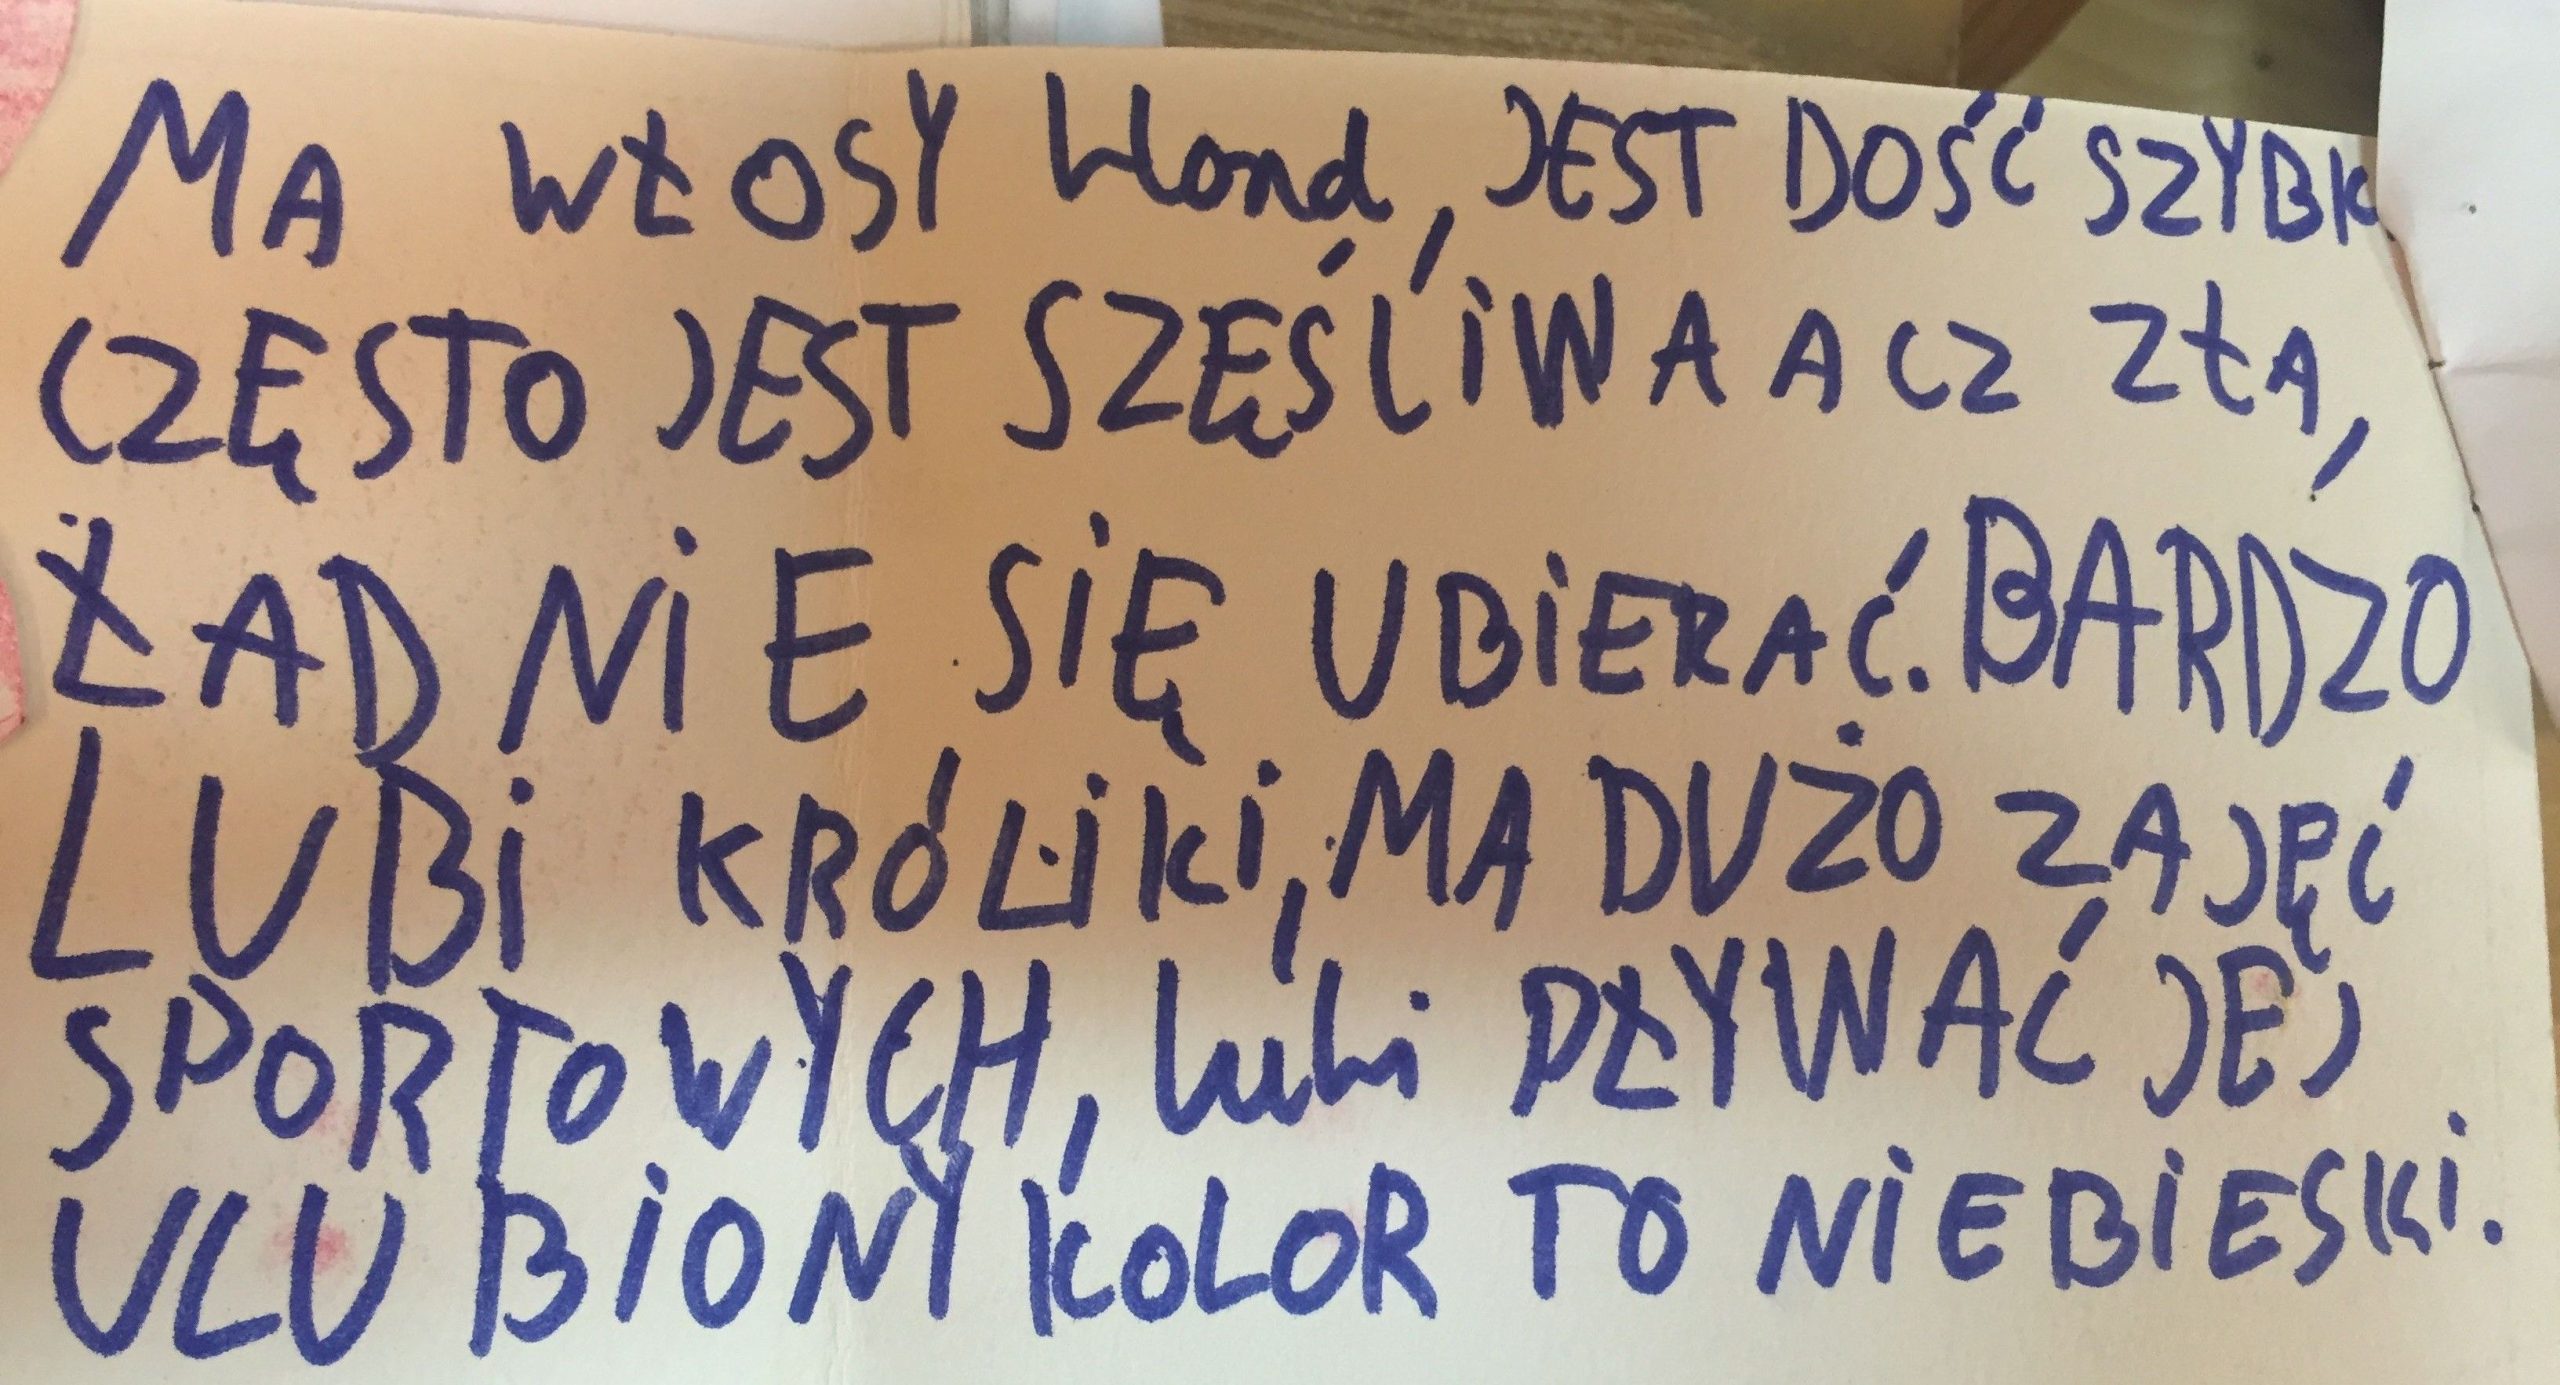 MA WŁOSY blond, JEST DOŚĆ SZYBK
CZĘSTO JEST SZĘŚLIWA ACZ ZŁA,
ŁADNIE SIĘ UBIERAĆ. BARDZO
LUBi KRÓLiKi, MA DUŻO ZAJĘĆ
SPORTOWYCH, lubi PŁYWAĆ JEJ
ULUBiONY KOLOR TO NiEBiESKi.